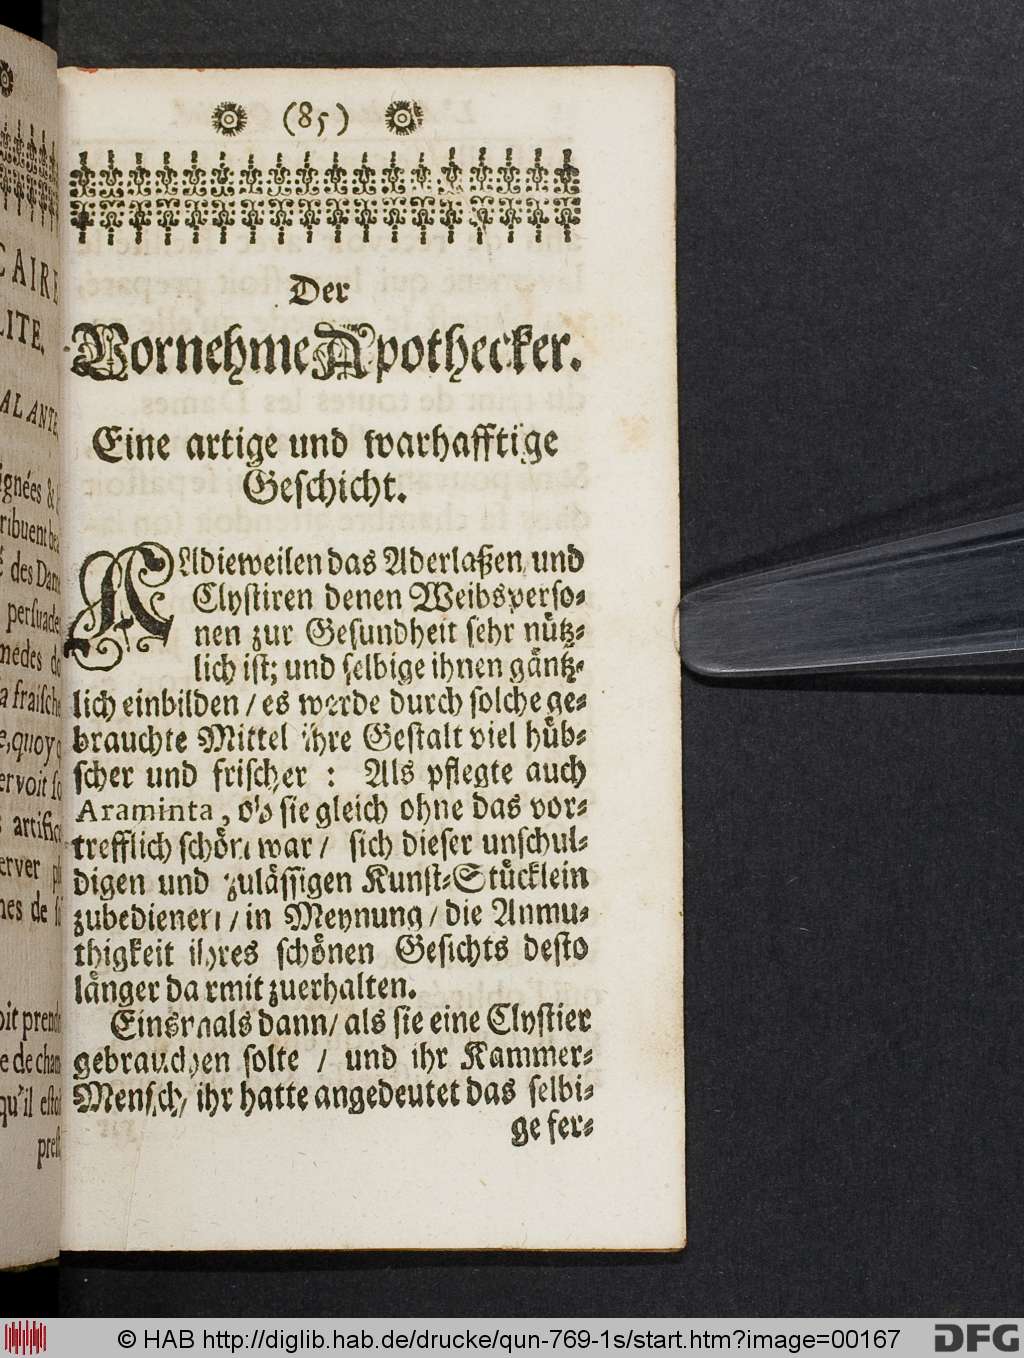 CAIRE
LITE.
ALANTE.
ignées &
ribuent
des Dam
persuade
medes de
a fraische
e, quoy q
ervoit so
artific
erver
nes de
oit prend
e de cham
qu'il esto
prest
(85)
Der
Vornehme Apothecker.
Eine artige und warhafftige
Geschicht.
ALldieweilen das Aderlaßen und
Clystiren denen Weibsperso-
nen zur Gesundheit sehr nütz-
lich ist; und selbige ihnen gäntz-
lich einbilden / es werde durch solche ge-
brauchte Mittel ihre Gestalt viel hüb-
scher und frischer : Als pflegte auch
Araminta, ob sie gleich ohne das vor-
trefflich schön war / sich dieser unschul-
digen und zulässigen Kunst-Stücklein
zubedienen / in Meynung / die Anmu-
thigkeit ihres schönen Gesichts desto
länger darmit zuerhalten.
Einsmals dann / als sie eine Clystier
gebrauchen solte / und ihr Kammer-
Mensch / ihr hatte angedeutet das selbi-
ge fer-
© HAB http://diglib.hab.de/drucke/qun-769-1s/start.htm?image=00167
DFG